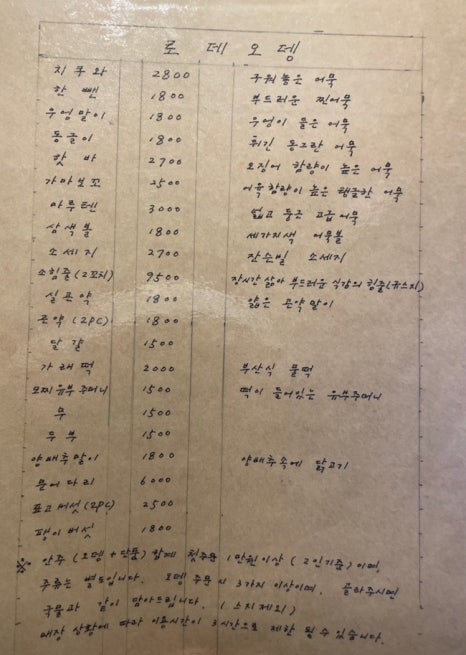 로데오뎅
치쿠와 2800 구워놓은 어묵
한뻰 1800 부드러운 찐어묵
우엉말이 1800 우엉이 들은 어묵
동글이 1800 튀긴 동그란 어묵
핫바 2700 오징어 함량이 높은 어묵
가마보꼬 2500 어육함량이 높은 탱글한 어묵
마루텐 3000 넓고 둥근 고급어묵
삼색볼 1800 세가지색 어묵볼
소세지 2700 잔슨빌 소세지
소힘줄(2꼬치) 9500 장시간 삶아 부드러운 식감의 힘줄(규스지)
실곤약 1800 얇은 곤약말이
곤약(2PC) 1800
달걀 1500
가래떡 2000 부산식 물떡
모찌유부주머니 1500 떡이 들어있는 유부주머니
무 1500
두부 1500
양배추말이 1800 양배추속에 닭고기
문어다리 6000
표고버섯(2PC) 2500
팽이버섯 1800
※ 안주(오뎅+단품) 합계 첫주문 1만원이상(2인기준)이며,
주류는 별도입니다. 오뎅 주문시 3가지 이상이며, 골라주시면
국물과 같이 담아드립니다. (스지제외)
매장 상황에 따라 이용시간이 3시간으로 제한 될 수 있습니다.